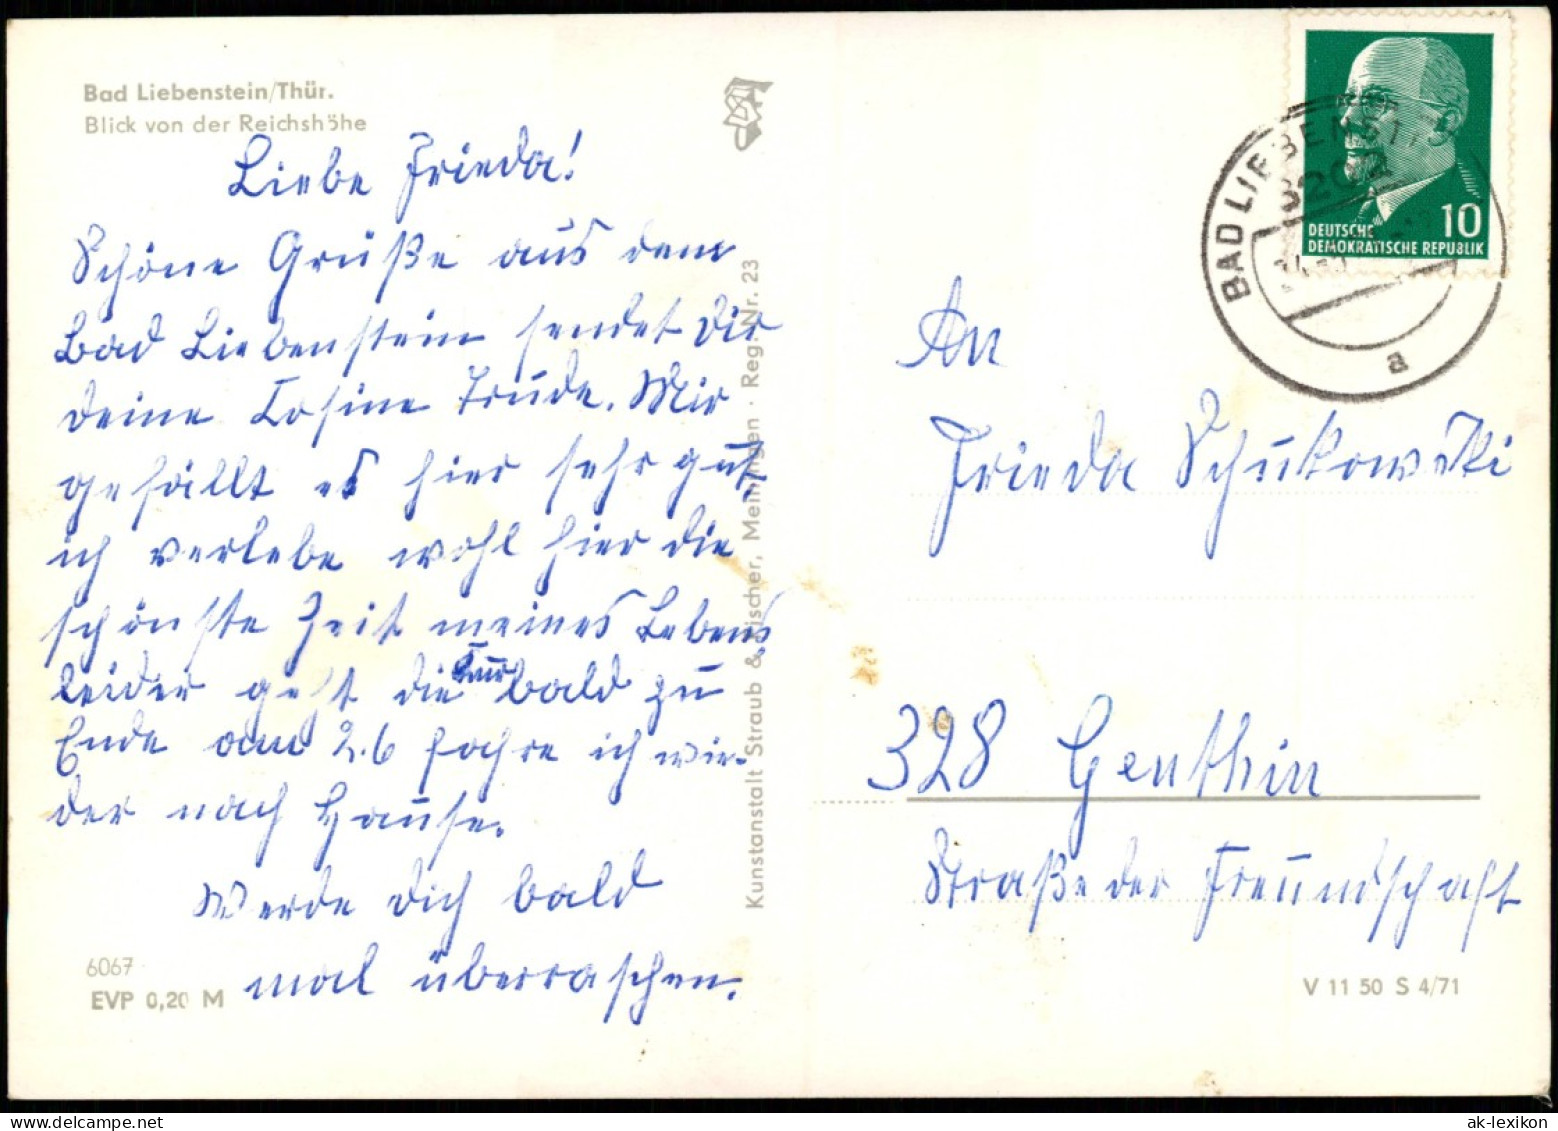 Bad Liebenstein/Thür.
Blick von der Reichshöhe
Liebe Frieda!
Schöne Grüße aus dem
Bad Liebenstein sendet Dir
deine Cosine Trude. Mir
gefällt es hier sehr gut,
ich verlebe wohl hier die
schönste Zeit meines Lebens
leider geht die Kur bald zu
Ende am 2.6 fahre ich wie-
der nach Hause.
Werde dich bald
mal überraschen.
6067
EVP 0,20 M
Kunstanstalt Straub & Fischer, Meiningen · Reg.-Nr. 23
BAD LIEBENSTEIN
a
10
DEUTSCHE
DEMOKRATISCHE REPUBLIK
An
Frieda Schukowski
328 Genthin
Straße der Freundschaft
V 11 50 S 4/71
ak-lexikon